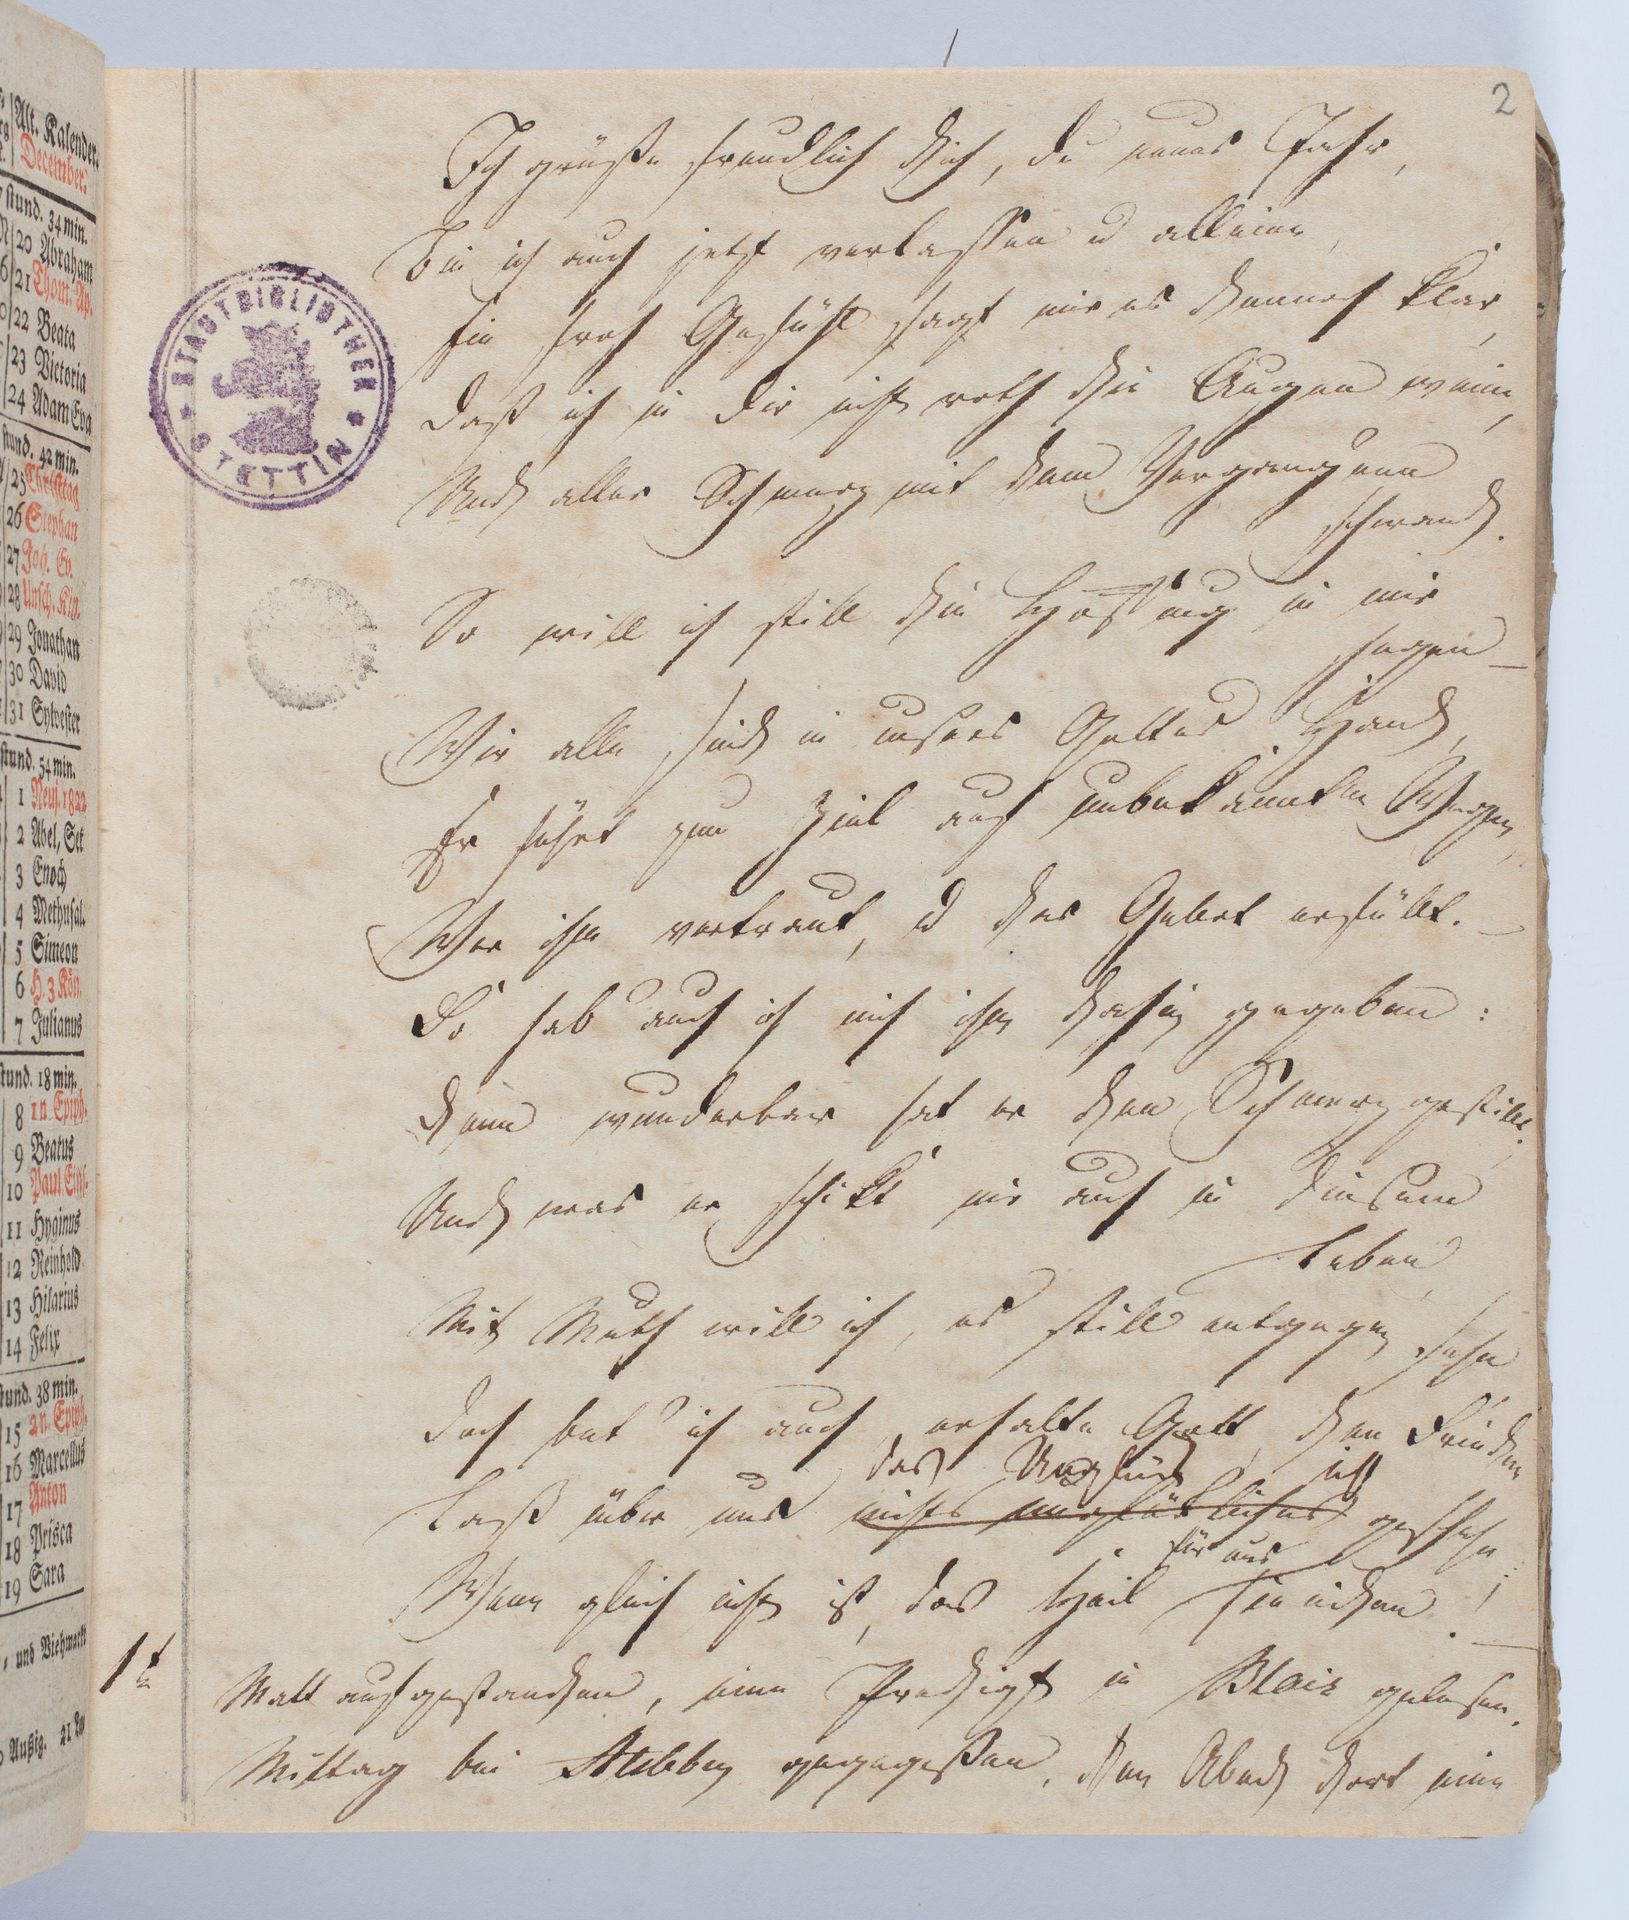 2
Alt. Kalender.
December.
stund. 34 min.
20 Abraham
21 Thom. Ap.
22 Beata
23 Victoria
24 Adam Eva
stund. 42 min.
25 Christtag
26 Stephan
27 Joh. Ev.
28 Unsch. Kin.
29 Jonathan
30 David
31 Sylvester
stund. 54 min.
1 Neuj. 1822
2 Abel, Set
3 Enoch
4 Methusal.
5 Simeon
6 H. 3 Kön.
7 Julianus
stund. 18 min.
8 1 n. Epiph.
9 Beatus
10 Paul Eins.
11 Hyginus
12 Reinhold
13 Hilarius
14 Felix
stund. 38 min.
15 2 n. Epiph.
16 Marcellus
17 Anton
18 Prisca
19 Sara
und Viehmarkt
Außig. 21
STADTBIBLIOTHEK
STETTIN
Ich grüße freudlich dich, du neues Jahr,
Bin ich auch jetzt verlassen u alleine,
Ein froh Gefühl sagt mir es dennoch klar,
Daß ich in dir nicht roth die Augen weine,
Und aller Schmerz mit dem Vergangenen
schwand.
So will ich still die Hoffnung in mir
hegen –
Wir alle sind in unsers Gottes Hand,
Er führt zum Ziel auf unbekannten Wegen,
Wer ihm vertraut, u das Gebet erfüllt. –
So hab auch ich mich ihm dahin gegeben:
Denn wunderbar hat er den Schmerz gestillt.
Und was er schikt mir auch in diesem
Leben
Mit Muth will ich, es still entgegen sehn
Doch bet' ich auch, erhalte Gott, den Frieden
das Unglück nicht
Laß über uns nichts unglükliches geschehn
für uns
Wenn gleich nicht ist, das Heil hienieden! –
1t
Matt aufgestanden, eine Predigt in Blair gelesen.
Mittag bei gegegeßen, den Abend dort eine